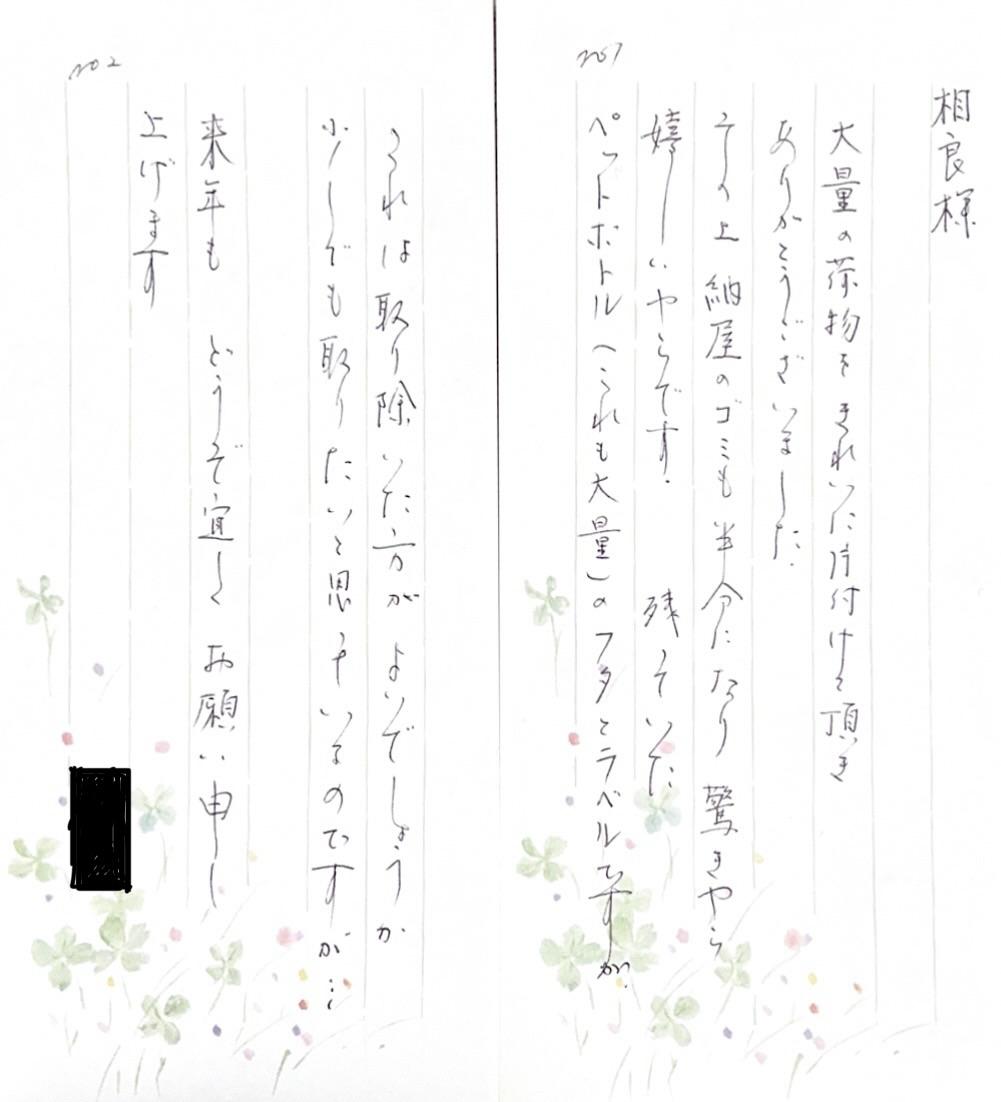 no1
相良様
大量の荷物を きれいに片付けて頂き
ありがとうございました.
その上 納屋のゴミも 半分になり 驚きやら
嬉しいやらです. 残っていた
ペットボトル(これも大量)のフタとラベルですが、
no2
これは取り除いた方が よいでしょうか
少しでも取りたいと思っているのですが…
来年も どうぞ宜しく お願い申し
上げます